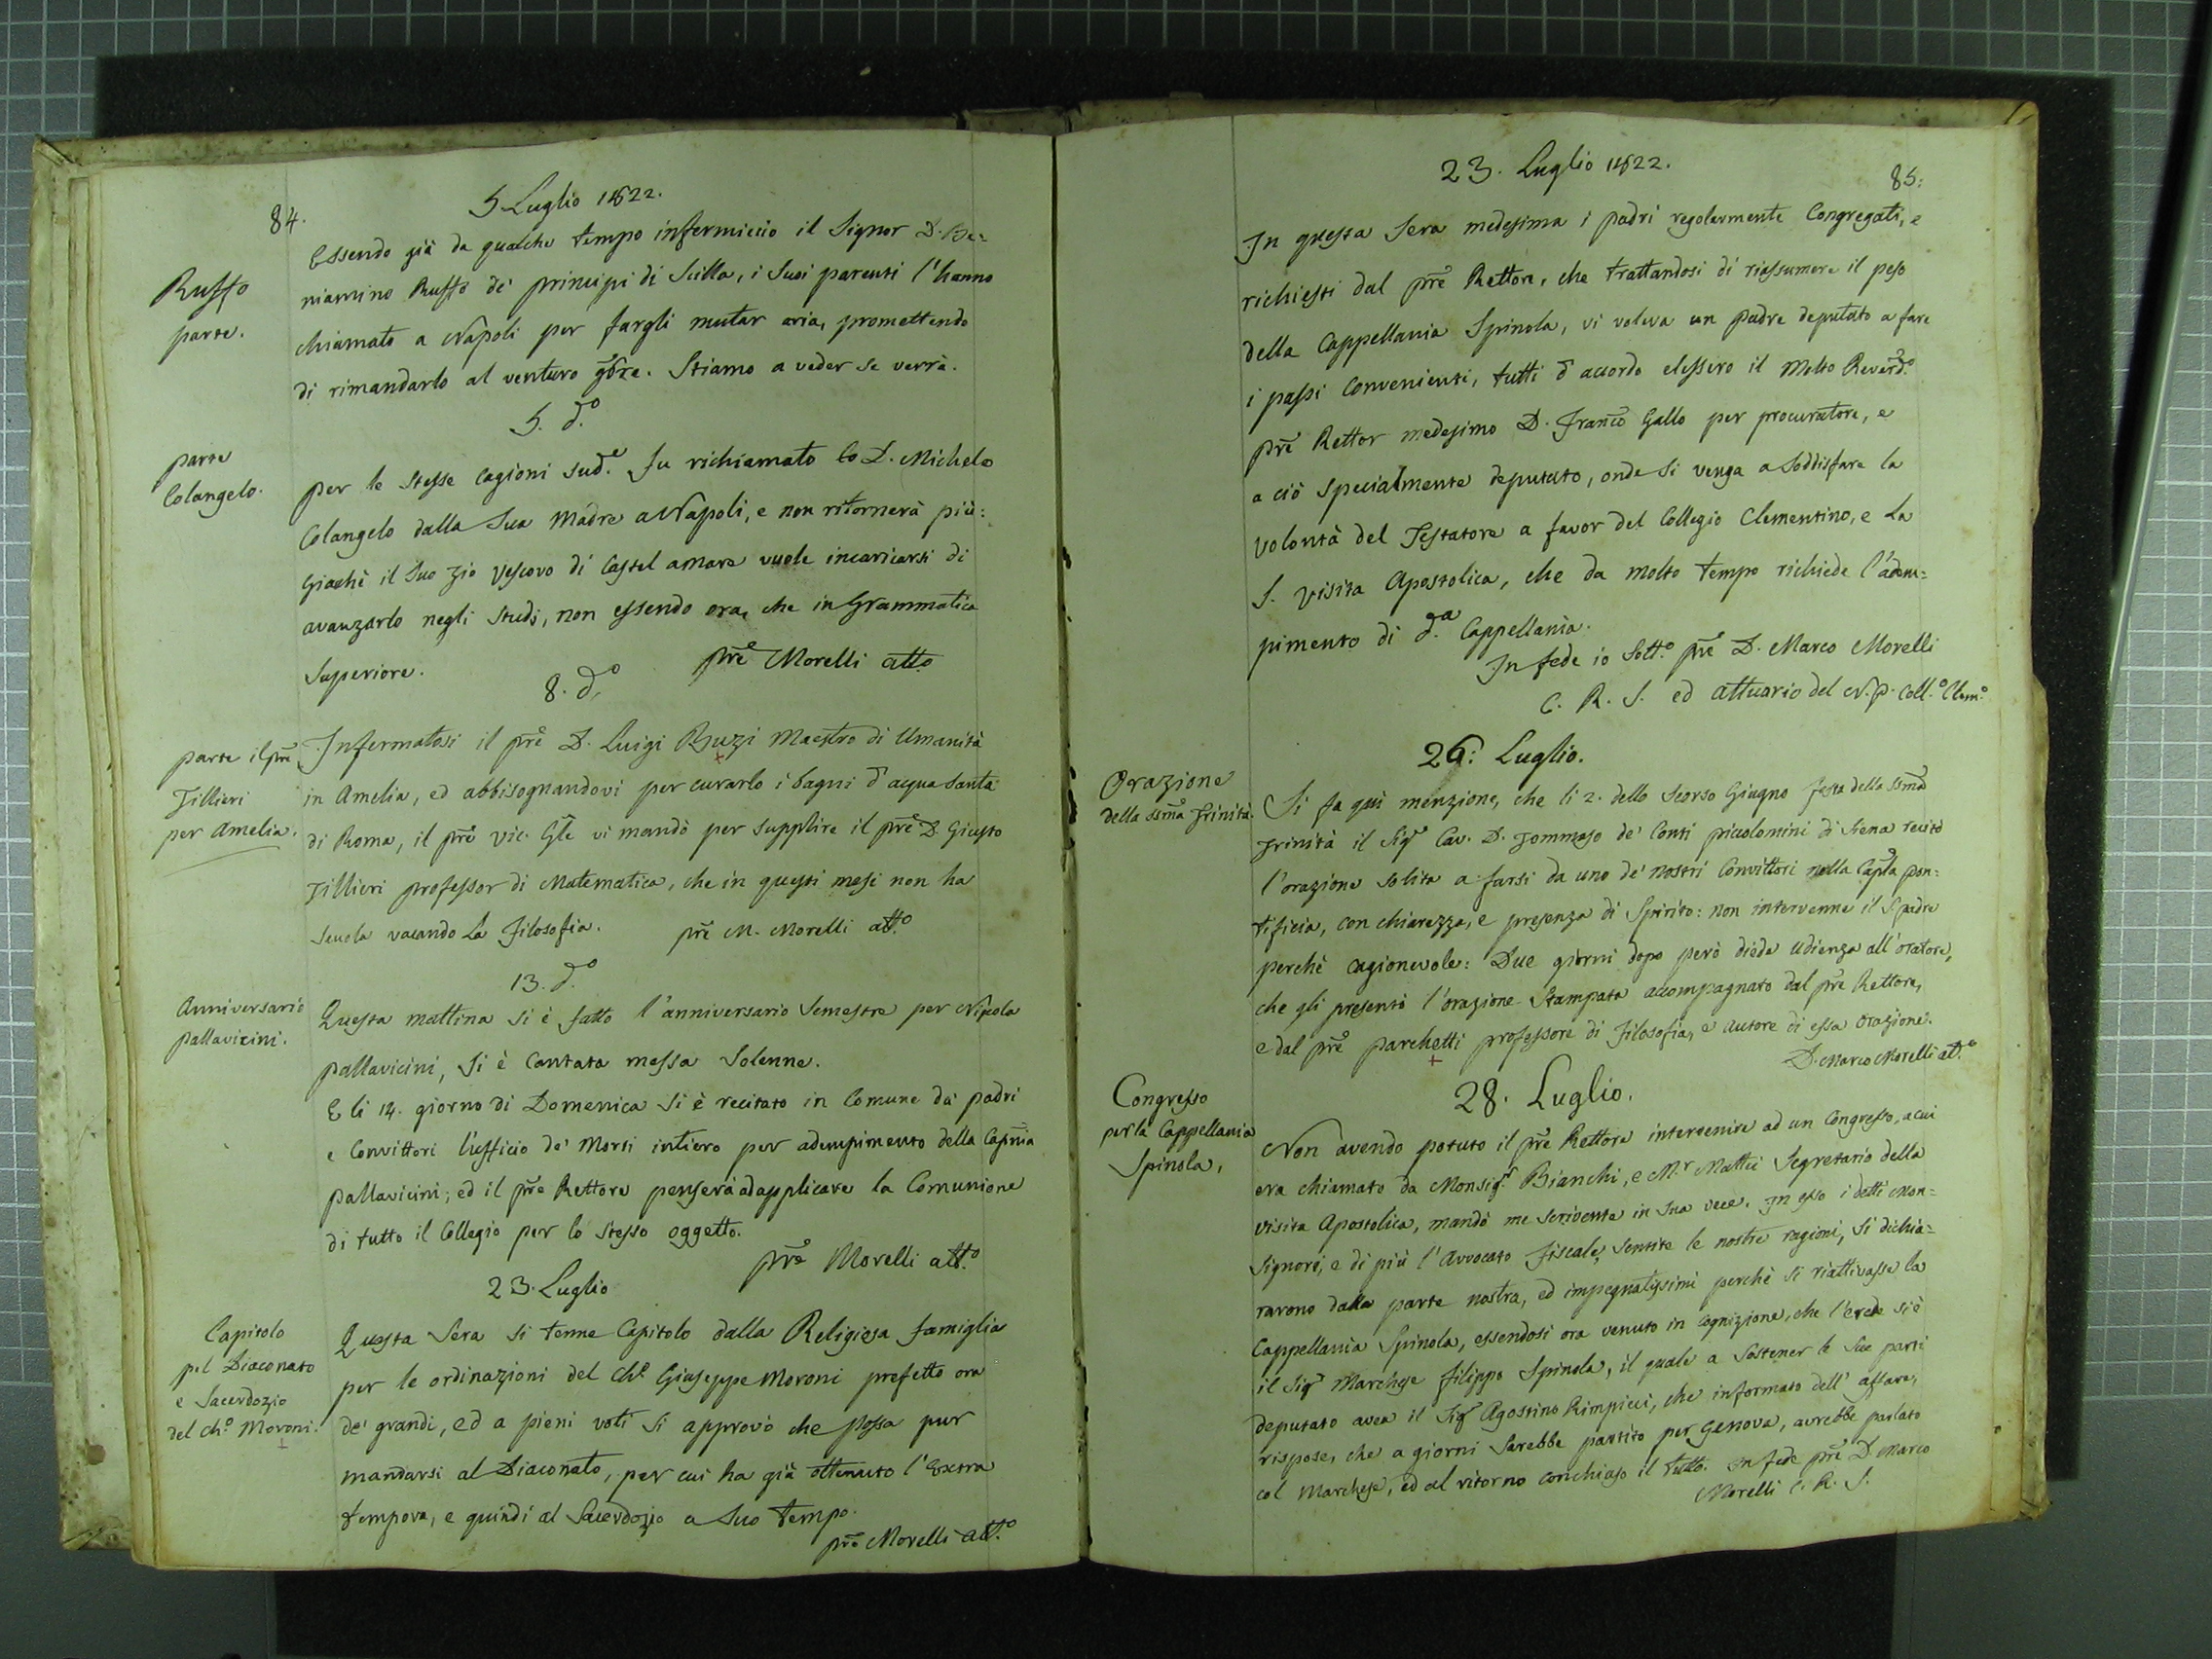 84.
5 Luglio 1822.
Ruffo
parte.
Essendo già da qualche tempo infermiccio il Signor D. Be=
niamino Ruffo de' principi di Scilla, i suoi parenti l'hanno
chiamato a Napoli per fargli mutar aria, promettendo
di rimandarlo al venturo 9bre. Stiamo a veder se verrà.
5. d.o
parte
Colangelo.
per le stesse cagioni sud.e fu richiamato lo D. Michele
Colangelo dalla sua Madre a Napoli, e non ritornerà più:
giachè il suo zio Vescovo di Castel amare vuole incaricarsi di
avanzarlo negli studj, non essendo ora, che in Grammatica
Superiore.
pre Morelli atto
8. d.o
parte il pre
Tillieri
per Amelia.
Infermatosi il pre D. Luigi Buzi Maestro di Umanità
in Amelia, ed abbisognandovi per curarlo i bagni d'acqua santa
di Roma, il pre Vic. Gle vi mandò per supplire il pre D. Giusto
Tillieri professor di Matematica, che in questi mesi non ha
scuola vacando la Filosofia.
pre M. Morelli att.o
13. d.o
Anniversario
Pallavicini.
Questa mattina si è fatto l'anniversario semestre per Nicola
pallavicini, si è cantata messa solenne.
E li 14. giorno di Domenica si è recitato in comune da' padri
e Convittori l'ufficio de' Morti intiero per adempimento della Capnia
pallavicini; ed il pre Rettore penserà ad applicare la Comunione
di tutto il Collegio per lo stesso oggetto.
pre Morelli att.o
23. Luglio
Capitolo
pel Diaconato
e Sacerdozio
del Ch.o Moroni.
Questa sera si tenne Capitolo dalla Religiosa famiglia
per le ordinazioni del Ch.o Giuseppe Moroni prefetto ora
de' grandi, ed a pieni voti si approvò che possa pur
mandarsi al Diaconato, per cui ha già ottenuto l'Extra
tempora, e quindi al Sacerdozio a suo tempo.
pre Morelli att.o
23. Luglio 1822.
85.
In questa sera medesima i padri regolarmente Congregati, e
richiesti dal pre Rettore, che trattandosi di riassumere il peso
della Cappellania Spinola, vi voleva un padre deputato a fare
i passi convenienti, tutti d'accordo elessero il Molto Reverd.o
pre Rettor medesimo D. Franco Gallo per procuratore, e
a ciò specialmente deputato, onde si venga a soddisfare la
volontà del Testatore a favor del Collegio Clementino, e la
S. Visita Apostolica, che da molto tempo richiede l'adem=
pimento di d.a Cappellania.
In fede io sott.o pre D. Marco Morelli
C. R. S. ed attuario del N. P. Coll.o Clem.o
26: Luglio.
Orazione
della SSma Trinità.
Si fa quì menzione, che li 2. dello scorso Giugno festa della SSma
Trinità il Sigr Cav. D. Tommaso de' Conti piccolomini di Siena recitò
l'orazione solita a farsi da uno de' nostri Convittori nella Capla pon=
tificia, con chiarezza, e presenza di spirito: non intervenne il S. padre
perchè cagionevole: Due giorni dopo però diede udienza all'oratore,
che gli presentò l'orazione stampata accompagnato dal pre Rettore,
e dal pre parchetti professore di Filosofia, e autore di essa orazione.
D. Marco Morelli att.o
28. Luglio.
Congresso
per la Cappellania
Spinola,
Non avendo potuto il pre Rettore intervenire ad un Congresso, a cui
era chiamato da Monsigr. Bianchi, e M.r Mattei Segretario della
visita Apostolica, mandò me scrivente in sua vece. In esso i detti Mon=
signori, e di più l'Avvocato Fiscale, sentite le nostre ragioni, si dichia=
rarono dalla parte nostra, ed impegnatissimi perchè si riattivasse la
Cappellania Spinola, essendosi ora venuto in cognizione, che l'erede si è
il Sigr Marchese Filippo Spinola, il quale a sostener le sue parti
deputato avea il Sigr Agostino Rimpicci, che informato dell'affare,
rispose, che a giorni sarebbe partito per Genova, avrebbe parlato
col Marchese, ed al ritorno conchiuso il tutto. In fede pre D. Marco
Morelli C. R. S.